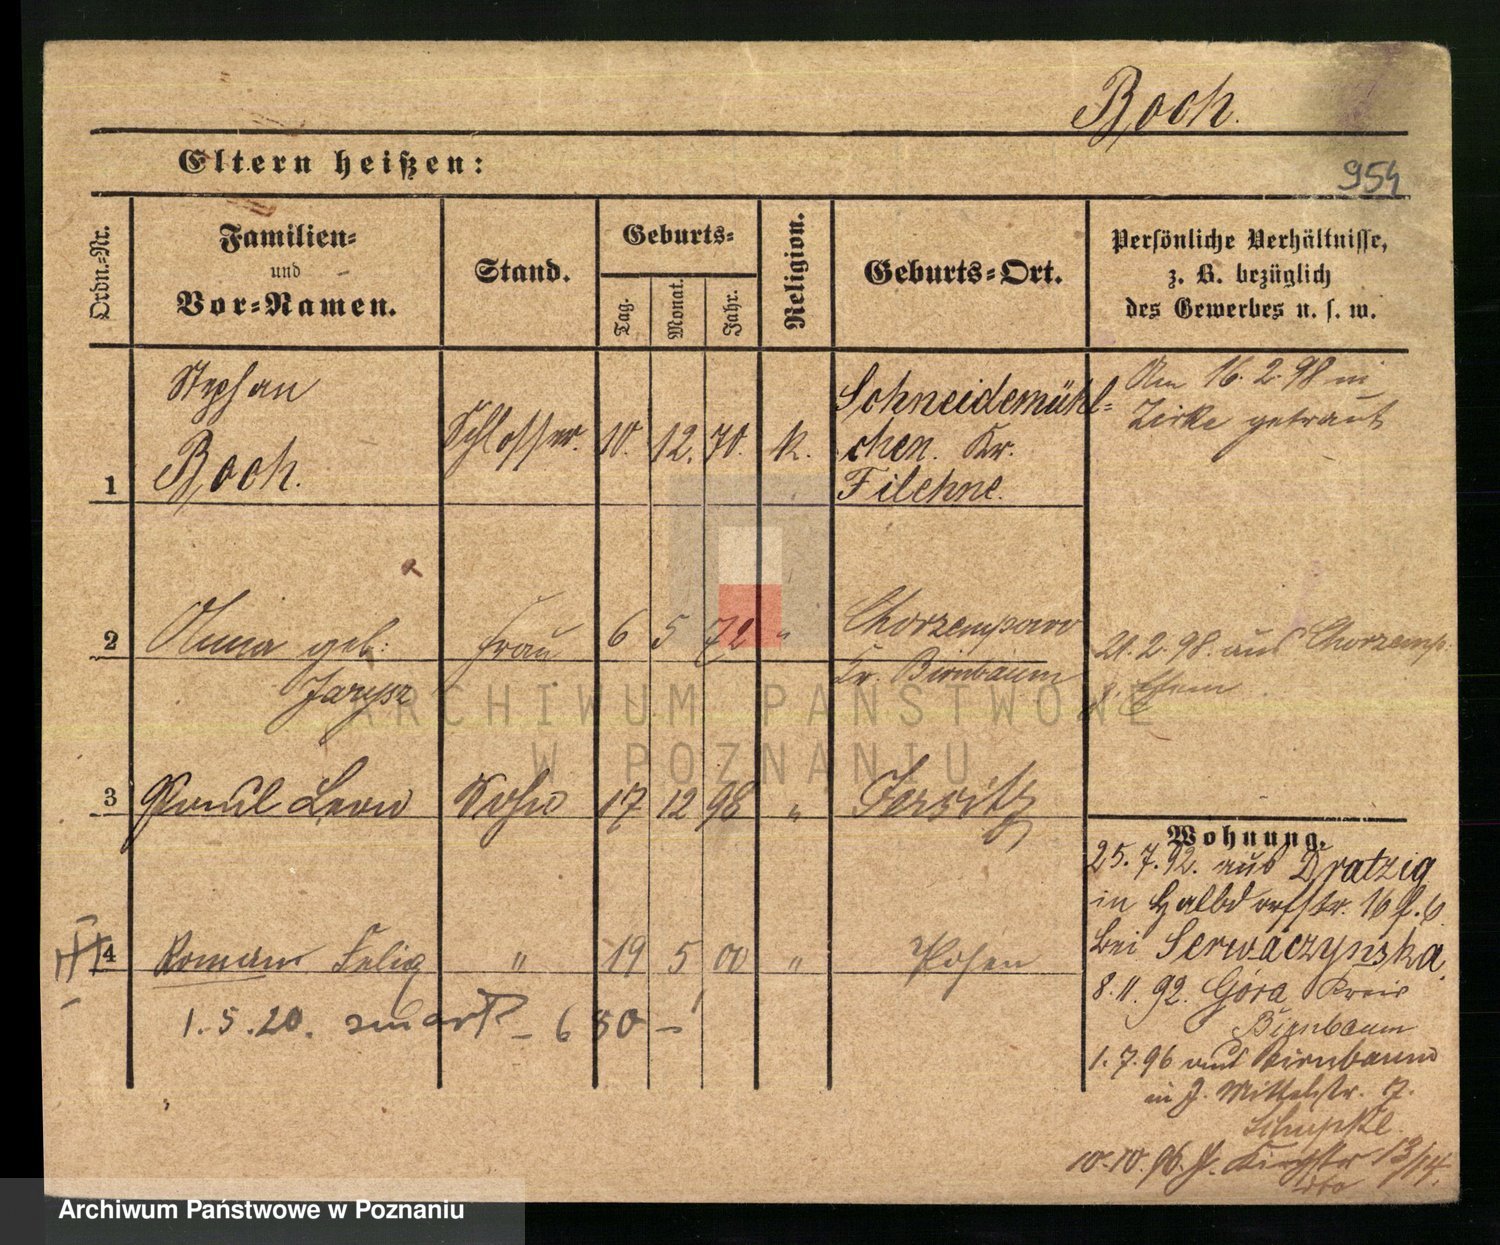 Boch.
Eltern heißen:
954
Ordn.-Nr.
Familien-
und
Vor-Namen.
Stand.
Geburts-
Tag.
Monat.
Jahr.
Religion.
Geburts-Ort.
Persönliche Verhältnisse,
z. B. bezüglich
des Gewerbes u. s. w.
1
Stephan
Boch.
Schlosser.
10. 12. 70.
k.
Schneidemühl-
chen. Kr.
Filehne.
Am 16. 2. 98 in
Zirke getraut
2
Anna geb:
Frau
6 5 72 "
Chorzempowo
Kr. Birnbaum
21. 2. 98. aus Chorzemp.
ARCHIWUM PAŃSTWOWE
W POZNANIU
3
Paul Leon
Sohn
17 12 98 "
Jersitz
Wohnung.
25. 7. 92. aus Dratzig
in Halbdorfstr. 16
bei Serwaczynska.
8. 11. 92. Góra Kreis
Birnbaum
1. 7. 96 aus Birnbaum
in J. Mittelstr. 7.
10. 10. 96. J. 13/14.
4
Roman Felix
" 19 5 00 "
Posen
1. 5. 20. zmarł - 650 -
Archiwum Państwowe w Poznaniu